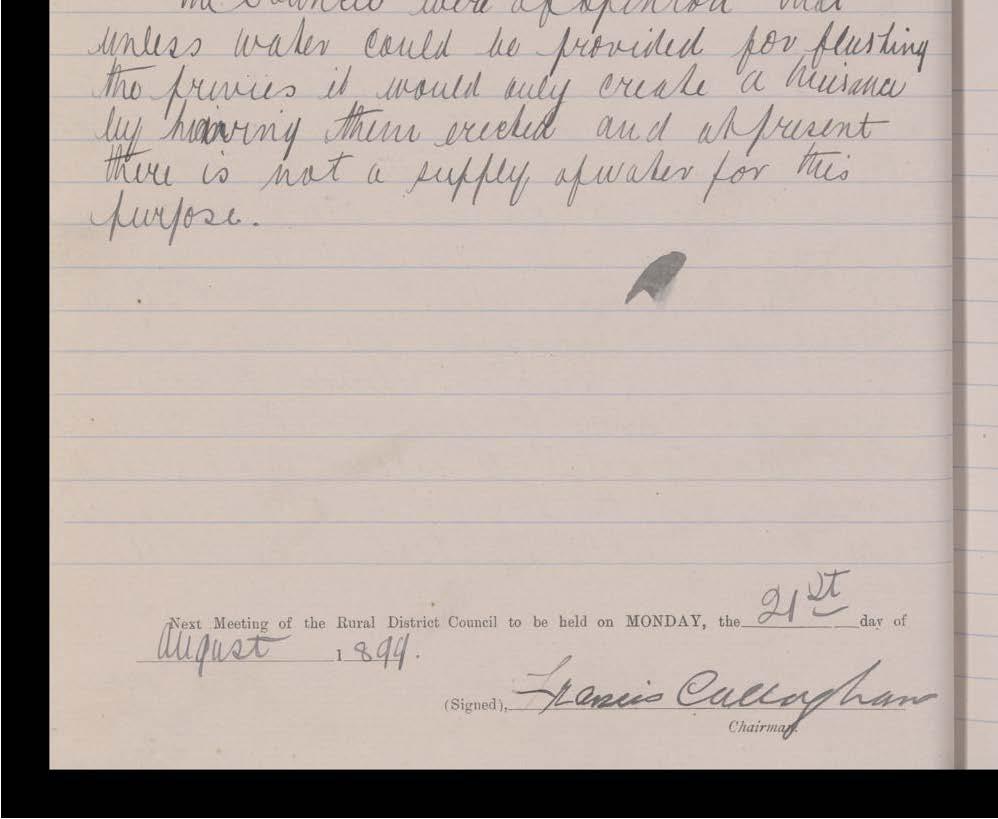 The Council were of opinion that
unless water could be provided for flushing
the privies it would only create a nuisance
by having them erected and at present
there is not a supply of water for this
purpose.
Next Meeting of the Rural District Council to be held on MONDAY, the 21st day of
August 1899.
(Signed), Francis Callaghan
Chairman.